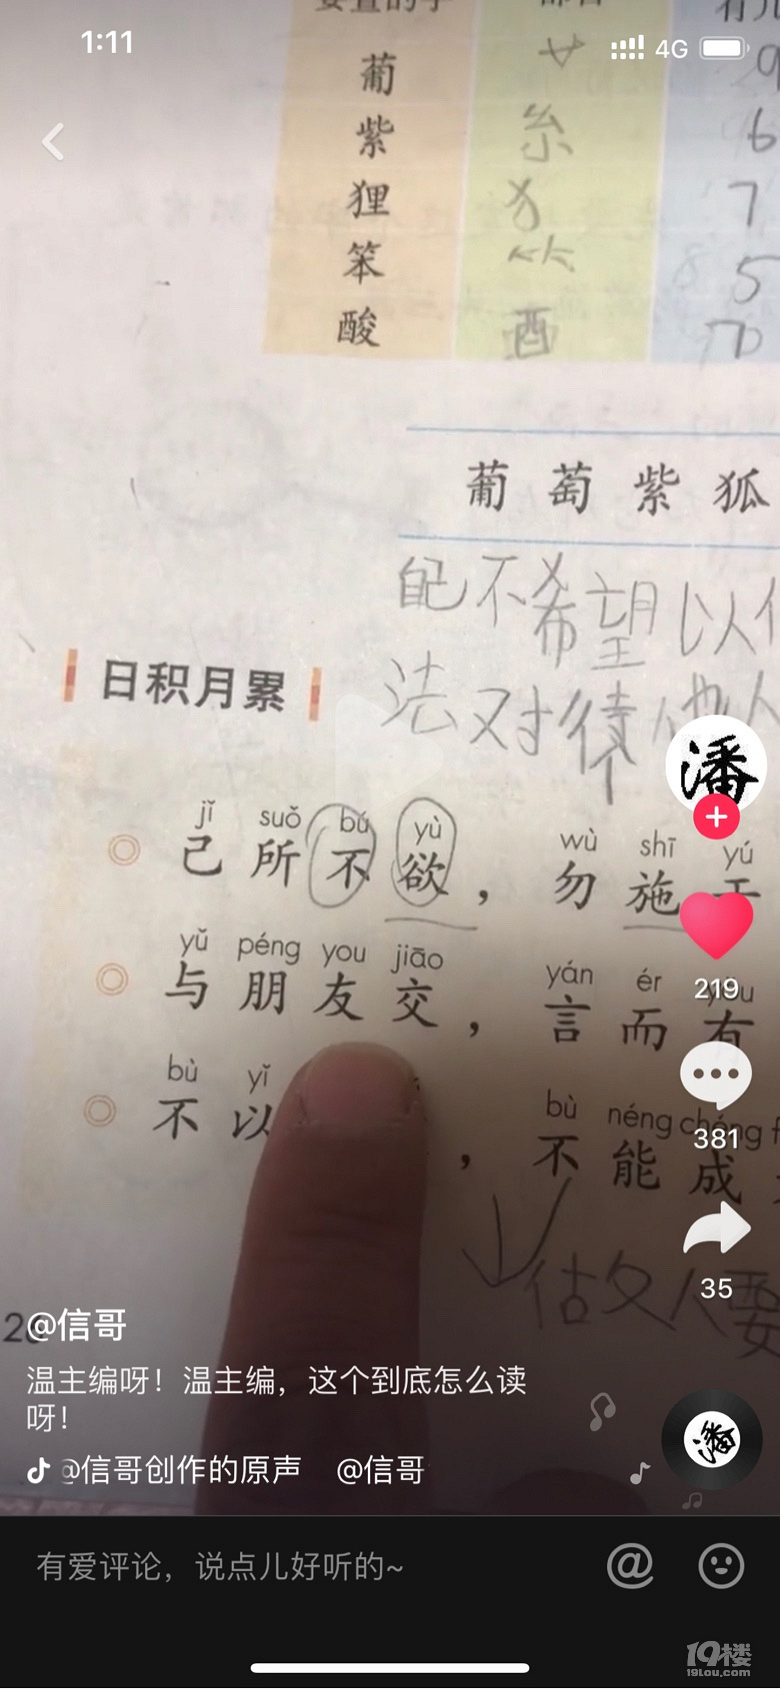 1:11
4G
葡 艹 9
紫 糸 6
狸 犭 7
笨 ⺮ 5
酸 酉 7
葡 萄 紫 狐
自己不希望以
法对待他人
日积月累
jǐ suǒ bú yù wù shī yú
己所不欲，勿施于
yǔ péng you jiāo yán ér yǒu
与朋友交，言而有
bù yǐ bù néng chéng f
不以，不能成
做人要
219
381
35
潘
@信哥
温主编呀！温主编，这个到底怎么读
呀！
@信哥创作的原声 @信哥
潘
有爱评论，说点儿好听的~
19楼
19lou.com